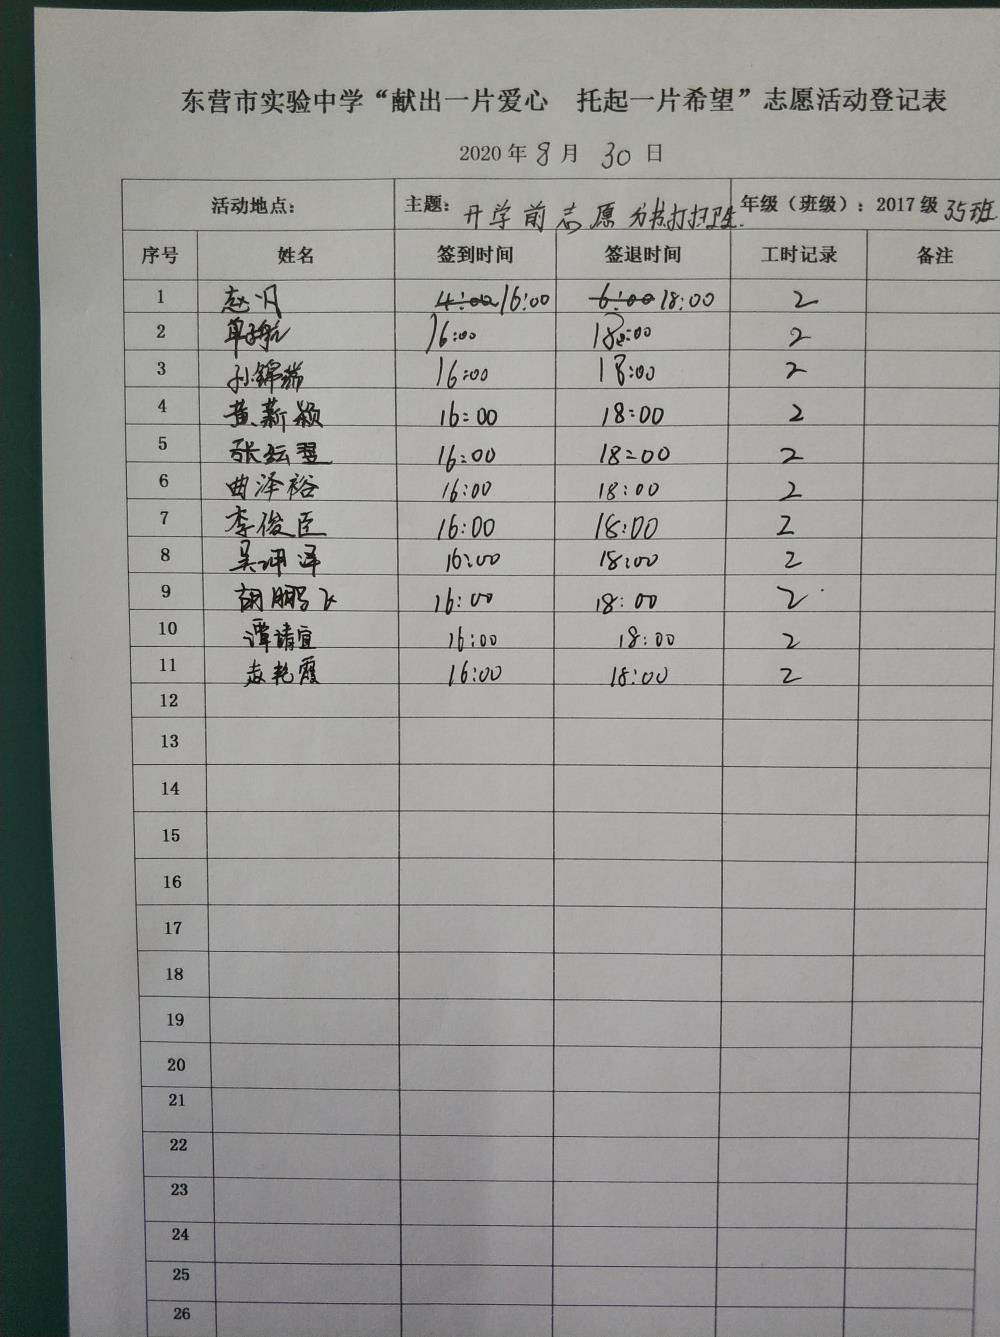 东营市实验中学“献出一片爱心 托起一片希望”志愿活动登记表
2020 年 8 月 30 日
活动地点： 主题：开学前志愿 打扫卫生. 年级（班级）：2017 级 35班
序号 姓名 签到时间 签退时间 工时记录 备注
1 赵 4:00 16:00 6:00 18:00 2
2 16:00 18:00 2
3 孙锦瑞 16:00 18:00 2
4 黄薪颖 16:00 18:00 2
5 张 翌 16:00 18:00 2
6 曲泽裕 16:00 18:00 2
7 李俊臣 16:00 18:00 2
8 吴 泽 16:00 18:00 2
9 胡鹏飞 16:00 18:00 2
10 谭靖宜 16:00 18:00 2
11 赵艳霞 16:00 18:00 2
12
13
14
15
16
17
18
19
20
21
22
23
24
25
26